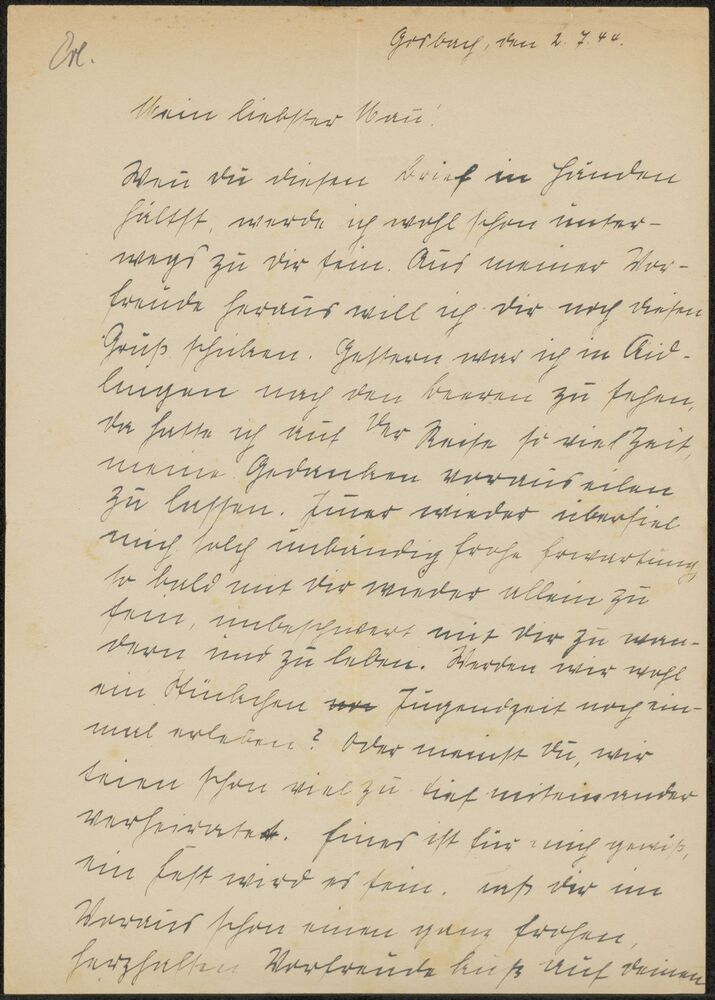 Erl.
Gosbach, den 2.7.44.
Mein liebster Mañ!
Weñ du diesen Brief in Händen
hältst, werde ich wohl schon unter-
wegs zu dir sein. Aus meiner Vor-
freude heraus will ich dir noch diesen
Gruß schicken. Gestern war ich in Aid-
lingen nach den Beeren zu sehen,
da hatte ich auf der Reise so viel Zeit,
meine Gedanken vorauseilen
zu lassen. Im̄er wieder überfiel
mich solch unbändig frohe Erwartung,
so bald mit dir wieder allein zu
sein, unbeschwert mit dir zu wan-
dern und zu leben. Werden wir wohl
ein Stückchen Jugendzeit noch ein-
mal erleben? Oder meinst du, wir
seien schon viel zu tief miteinander
verheiratet. Eines ist für mich gewiß,
ein Fest wird es sein. Laß dir im
Voraus schon einen ganz frohen,
herzhaften Vorfreude Kuß auf deinen